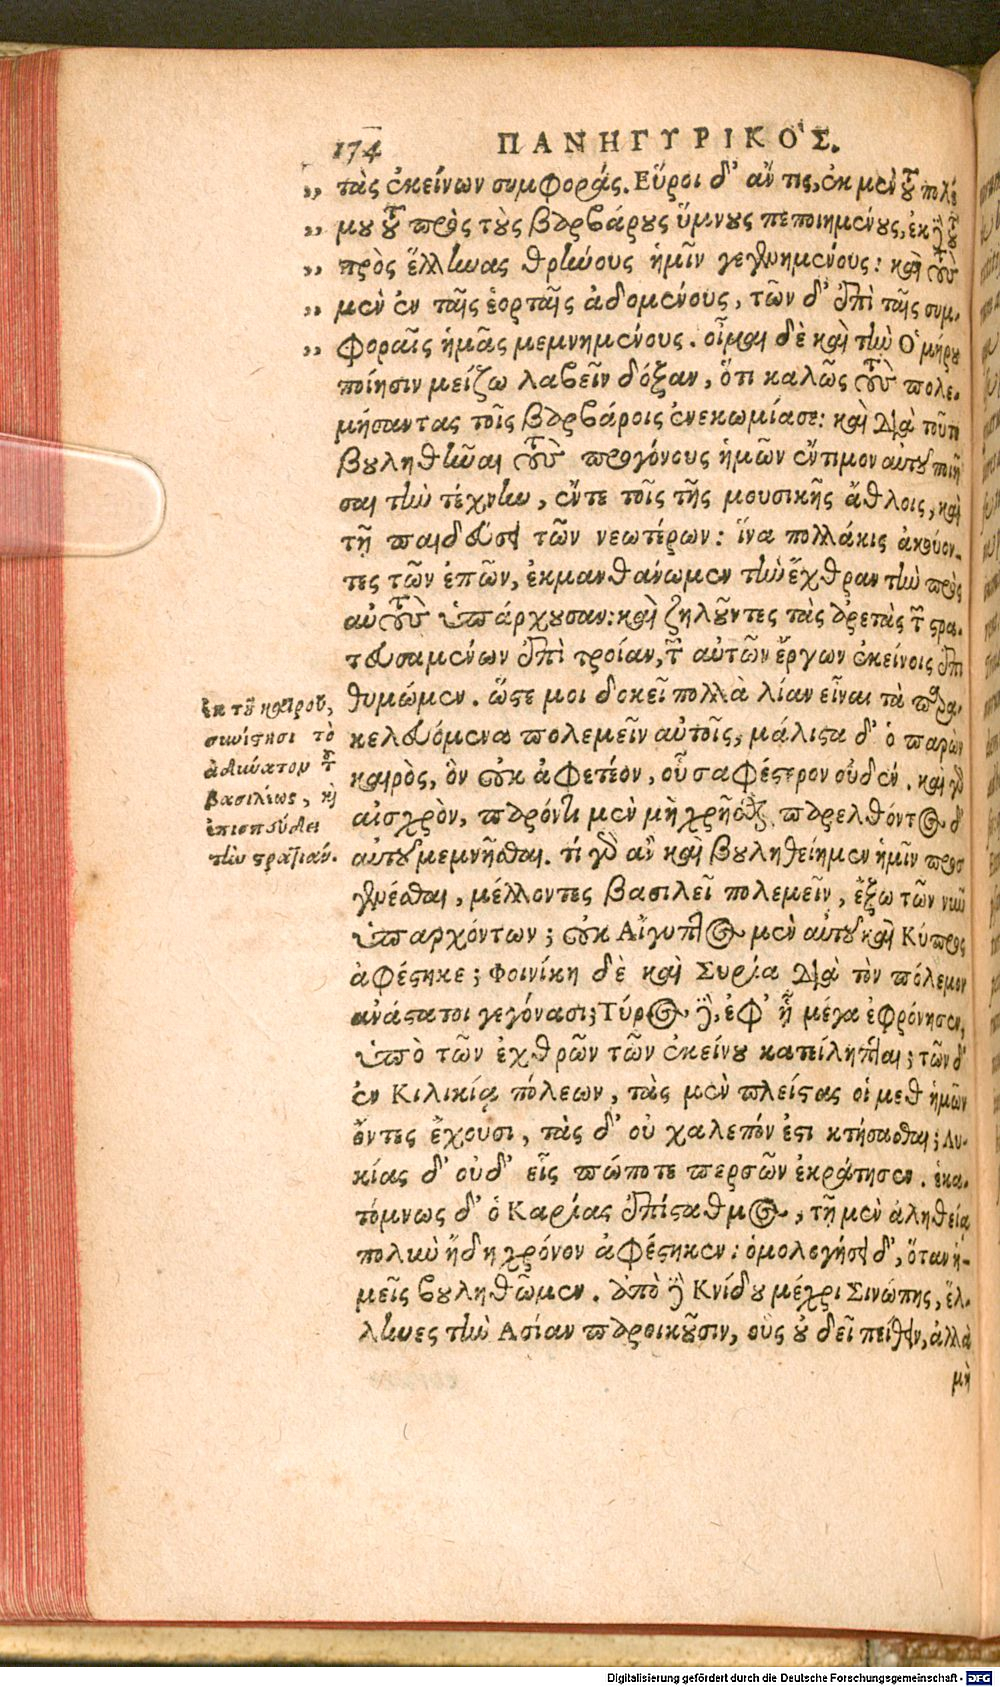 174 ΠΑΝΗΓΥΡΙΚΟ'Σ.
„ τὰς ἐκείνων συμφοράς. Εὕροι δ' ἄν τις, ἐκ μὲν τοῦ πολέ-
„ μου τοῦ πρὸς τοὺς βαρβάρους ὕμνους πεποιημένους, ἐκ δὲ τοῦ
„ πρὸς ἕλληνας θρήνους ἡμῖν γεγενημένους: καὶ τοὺς
„ μὲν ἐν ταῖς ἑορταῖς ἀδομένους, τῶν δ' ἐπὶ ταῖς συμ-
„ φοραῖς ἡμᾶς μεμνημένους. οἶμαι δὲ καὶ τὴν Ὁμήρου
ποίησιν μείζω λαβεῖν δόξαν, ὅτι καλῶς τοὺς πολε-
μήσαντας τοῖς βαρβάροις ἐνεκωμίασε: καὶ διὰ τοῦτο
βουληθῆναι τοὺς προγόνους ἡμῶν ἔντιμον αὐτοῦ ποιῆ
σαι τὴν τέχνην, ἔν τε τοῖς τῆς μουσικῆς ἄθλοις, καὶ
τῇ παιδεύσει τῶν νεωτέρων: ἵνα πολλάκις ἀκούον-
τες τῶν ἐπῶν, ἐκμανθάνωμεν τὴν ἔχθραν τὴν πρὸς
αὐτοὺς ὑπάρχουσαν: καὶ ζηλοῦντες τὰς ἀρετὰς τῶν στρα-
τευσαμένων ἐπὶ τροίαν, τῶν αὐτῶν ἔργων ἐκείνοις ἐπι
θυμῶμεν. ὥστε μοι δοκεῖ πολλὰ λίαν εἶναι τὰ παρα-
κελευόμενα πολεμεῖν αὐτοῖς, μάλιστα δ' ὁ παρὼν
καιρὸς, ὃν οὐκ ἀφετέον, οὗ σαφέστερον οὐδέν. καὶ γὰρ
αἰσχρὸν, παρόντι μὲν μὴ χρῆσθαι, παρελθόντος δ'
αὐτοῦ μεμνῆσθαι. τί γὰρ ἂν καὶ βουληθείημεν ἡμῖν προσ
γενέσθαι, μέλλοντες βασιλεῖ πολεμεῖν, ἔξω τῶν νῦν
ὑπαρχόντων; οὐκ Αἴγυπτος μὲν αὐτοῦ καὶ Κύπρος
ἀφέστηκε; Φοινίκη δὲ καὶ Συρία διὰ τὸν πόλεμον
ἀνάστατοι γεγόνασι; Τύρος δὲ, ἐφ' ᾗ μέγα ἐφρόνησεν,
ὑπὸ τῶν ἐχθρῶν τῶν ἐκείνου κατείληπται; τῶν δ'
ἐν Κιλικίᾳ πόλεων, τὰς μὲν πλείστας οἱ μεθ ἡμῶν
ὄντες ἔχουσι, τὰς δ' οὐ χαλεπόν ἐστι κτήσασθαι; Λυ-
κίας δ' οὐδ' εἷς πώποτε περσῶν ἐκράτησεν. ἑκα-
τόμνως δ' ὁ Καρίας ἐπίσταθμος, τῇ μὲν ἀληθείᾳ
πολὺν ἤδη χρόνον ἀφέστηκεν: ὁμολογήσει δ', ὅταν ἡ-
μεῖς βουληθῶμεν. ἀπὸ δὲ Κνίδου μέχρι Σινώπης, ἕλ-
ληνες τὴν Ασίαν παροικοῦσιν, οὓς οὐ δεῖ πείθειν, ἀλλὰ
μὴ
Ἐκ τοῦ καιροῦ,
συνίστησι τὸ
ἀδύνατον τοῦ
βασιλέως, καὶ
ἐπισπεύδει
τὴν στρατιάν.
Digitalisierung gefördert durch die Deutsche Forschungsgemeinschaft - DFG